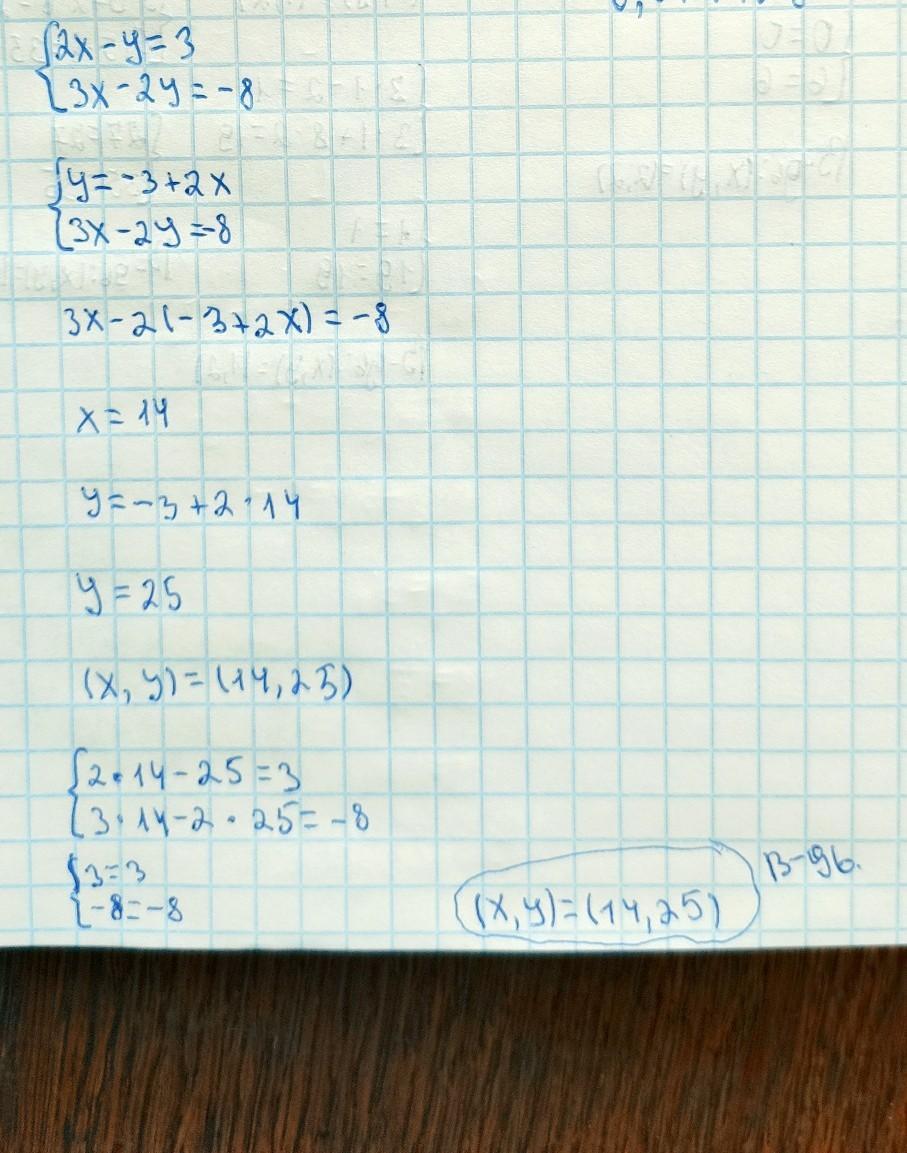 {2x-y=3
{3x-2y=-8
{y=-3+2x
{3x-2y=-8
3x-2(-3+2x)=-8
x=14
y=-3+2·14
y=25
(x,y)=(14,25)
{2·14-25=3
{3·14-2·25=-8
{3=3
{-8=-8
(x,y)=(14,25) В-дь.